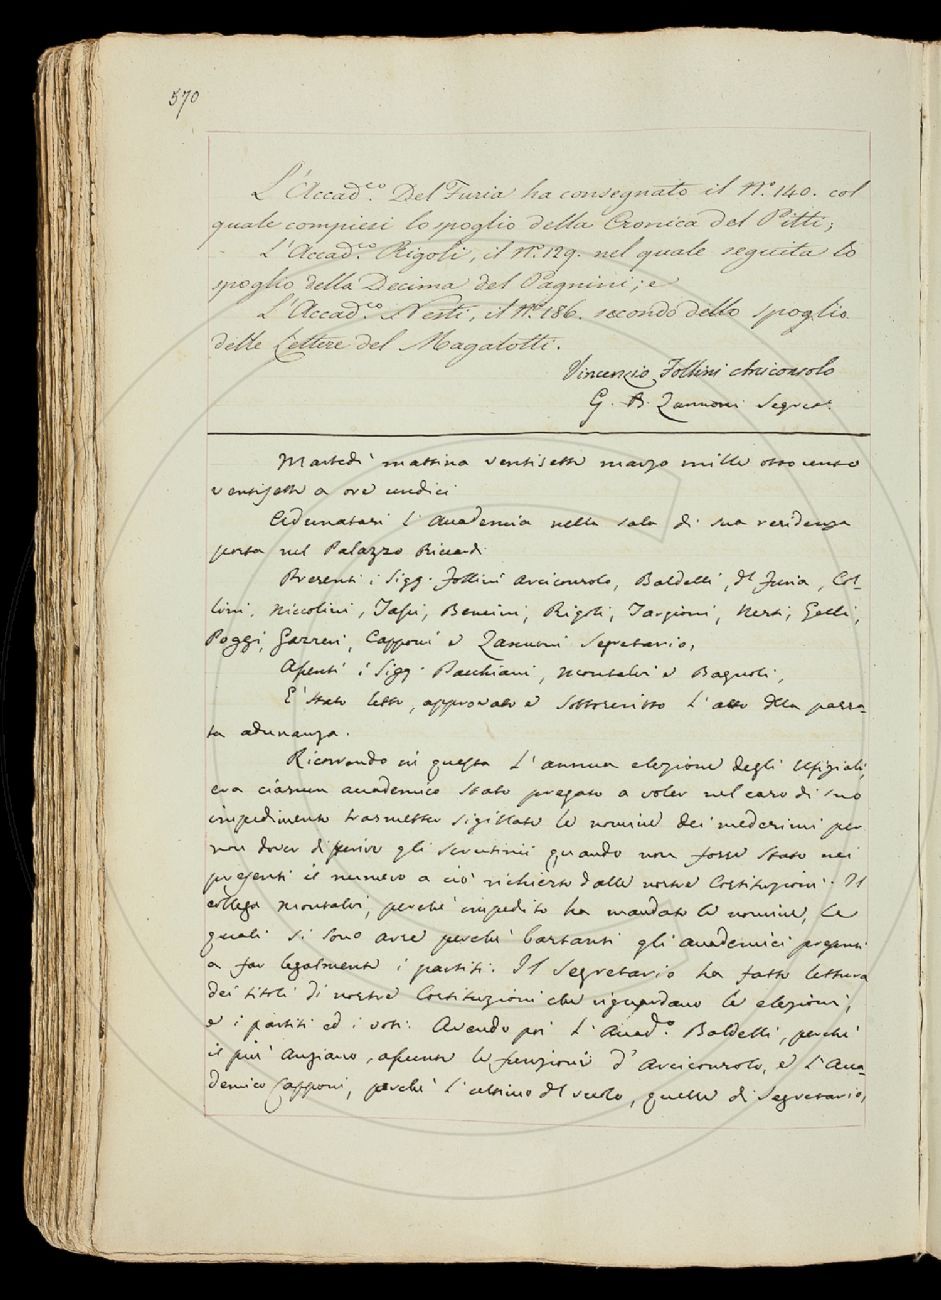 570
L'Accad.co Del Furia ha consegnato il N.o 140. col
quale compiesi lo spoglio della Cronica del Pitti;
L'Accad.co Rigoli, il N.o 129. nel quale seguita lo
spoglio della Decima del Pagnini; e
L'Accad.co Nesti, il N.o 186. secondo dello spoglio
delle Lettere del Magalotti.
Vincenzio Follini Arciconsolo
G. B. Zannoni Segret.
Martedì mattina ventisette marzo mille ottocento
ventisette a ore undici
Adunatasi l'Accademia nella sala di sua residenza
posta nel Palazzo Riccardi
Presenti i Sigg. Follini Arciconsolo, Baldelli, del Furia, Col-
lini, Niccolini, Tassi, Bencini, Rigoli, Targioni, Nesti, Gelli,
Poggi, Gazzeri, Capponi e Zannoni Segretario,
Assenti i Sigg. Pacchiani, Montalvi e Bagnoli,
È stato letto, approvato e sottoscritto l'atto della passa-
ta adunanza.
Ricorrendo in questa l'annua elezione degli Ufiziali,
era ciascun accademico stato pregato a voler nel caso di suo
impedimento trasmetter sigillate le nomine dei medesimi per
non dover differire gli scrutinii quando non fosse stato nei
presenti il numero a ciò richiesto dalle nostre Costituzioni. Il
collega Montalvi, perché impedito ha mandato le nomine, le
quali si sono arse perché bastanti gli accademici presenti
a far legalmente i partiti. Il Segretario ha fatto lettura
dei titoli di nostre Costituzioni che riguardano le elezioni,
e i partiti ed i voti. Avendo poi l'Accad.o Baldelli, perché
il più anziano, assunte le funzioni d'Arciconsolo, e l'Acca-
demico Capponi, perché l'ultimo del ruolo, quelle di Segretario,